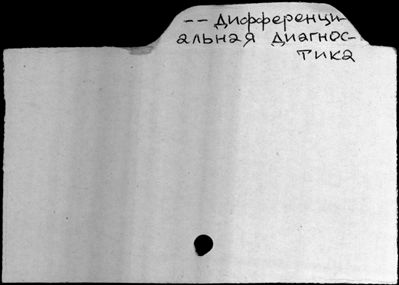 -- Дифференци-
альная диагнос-
тика